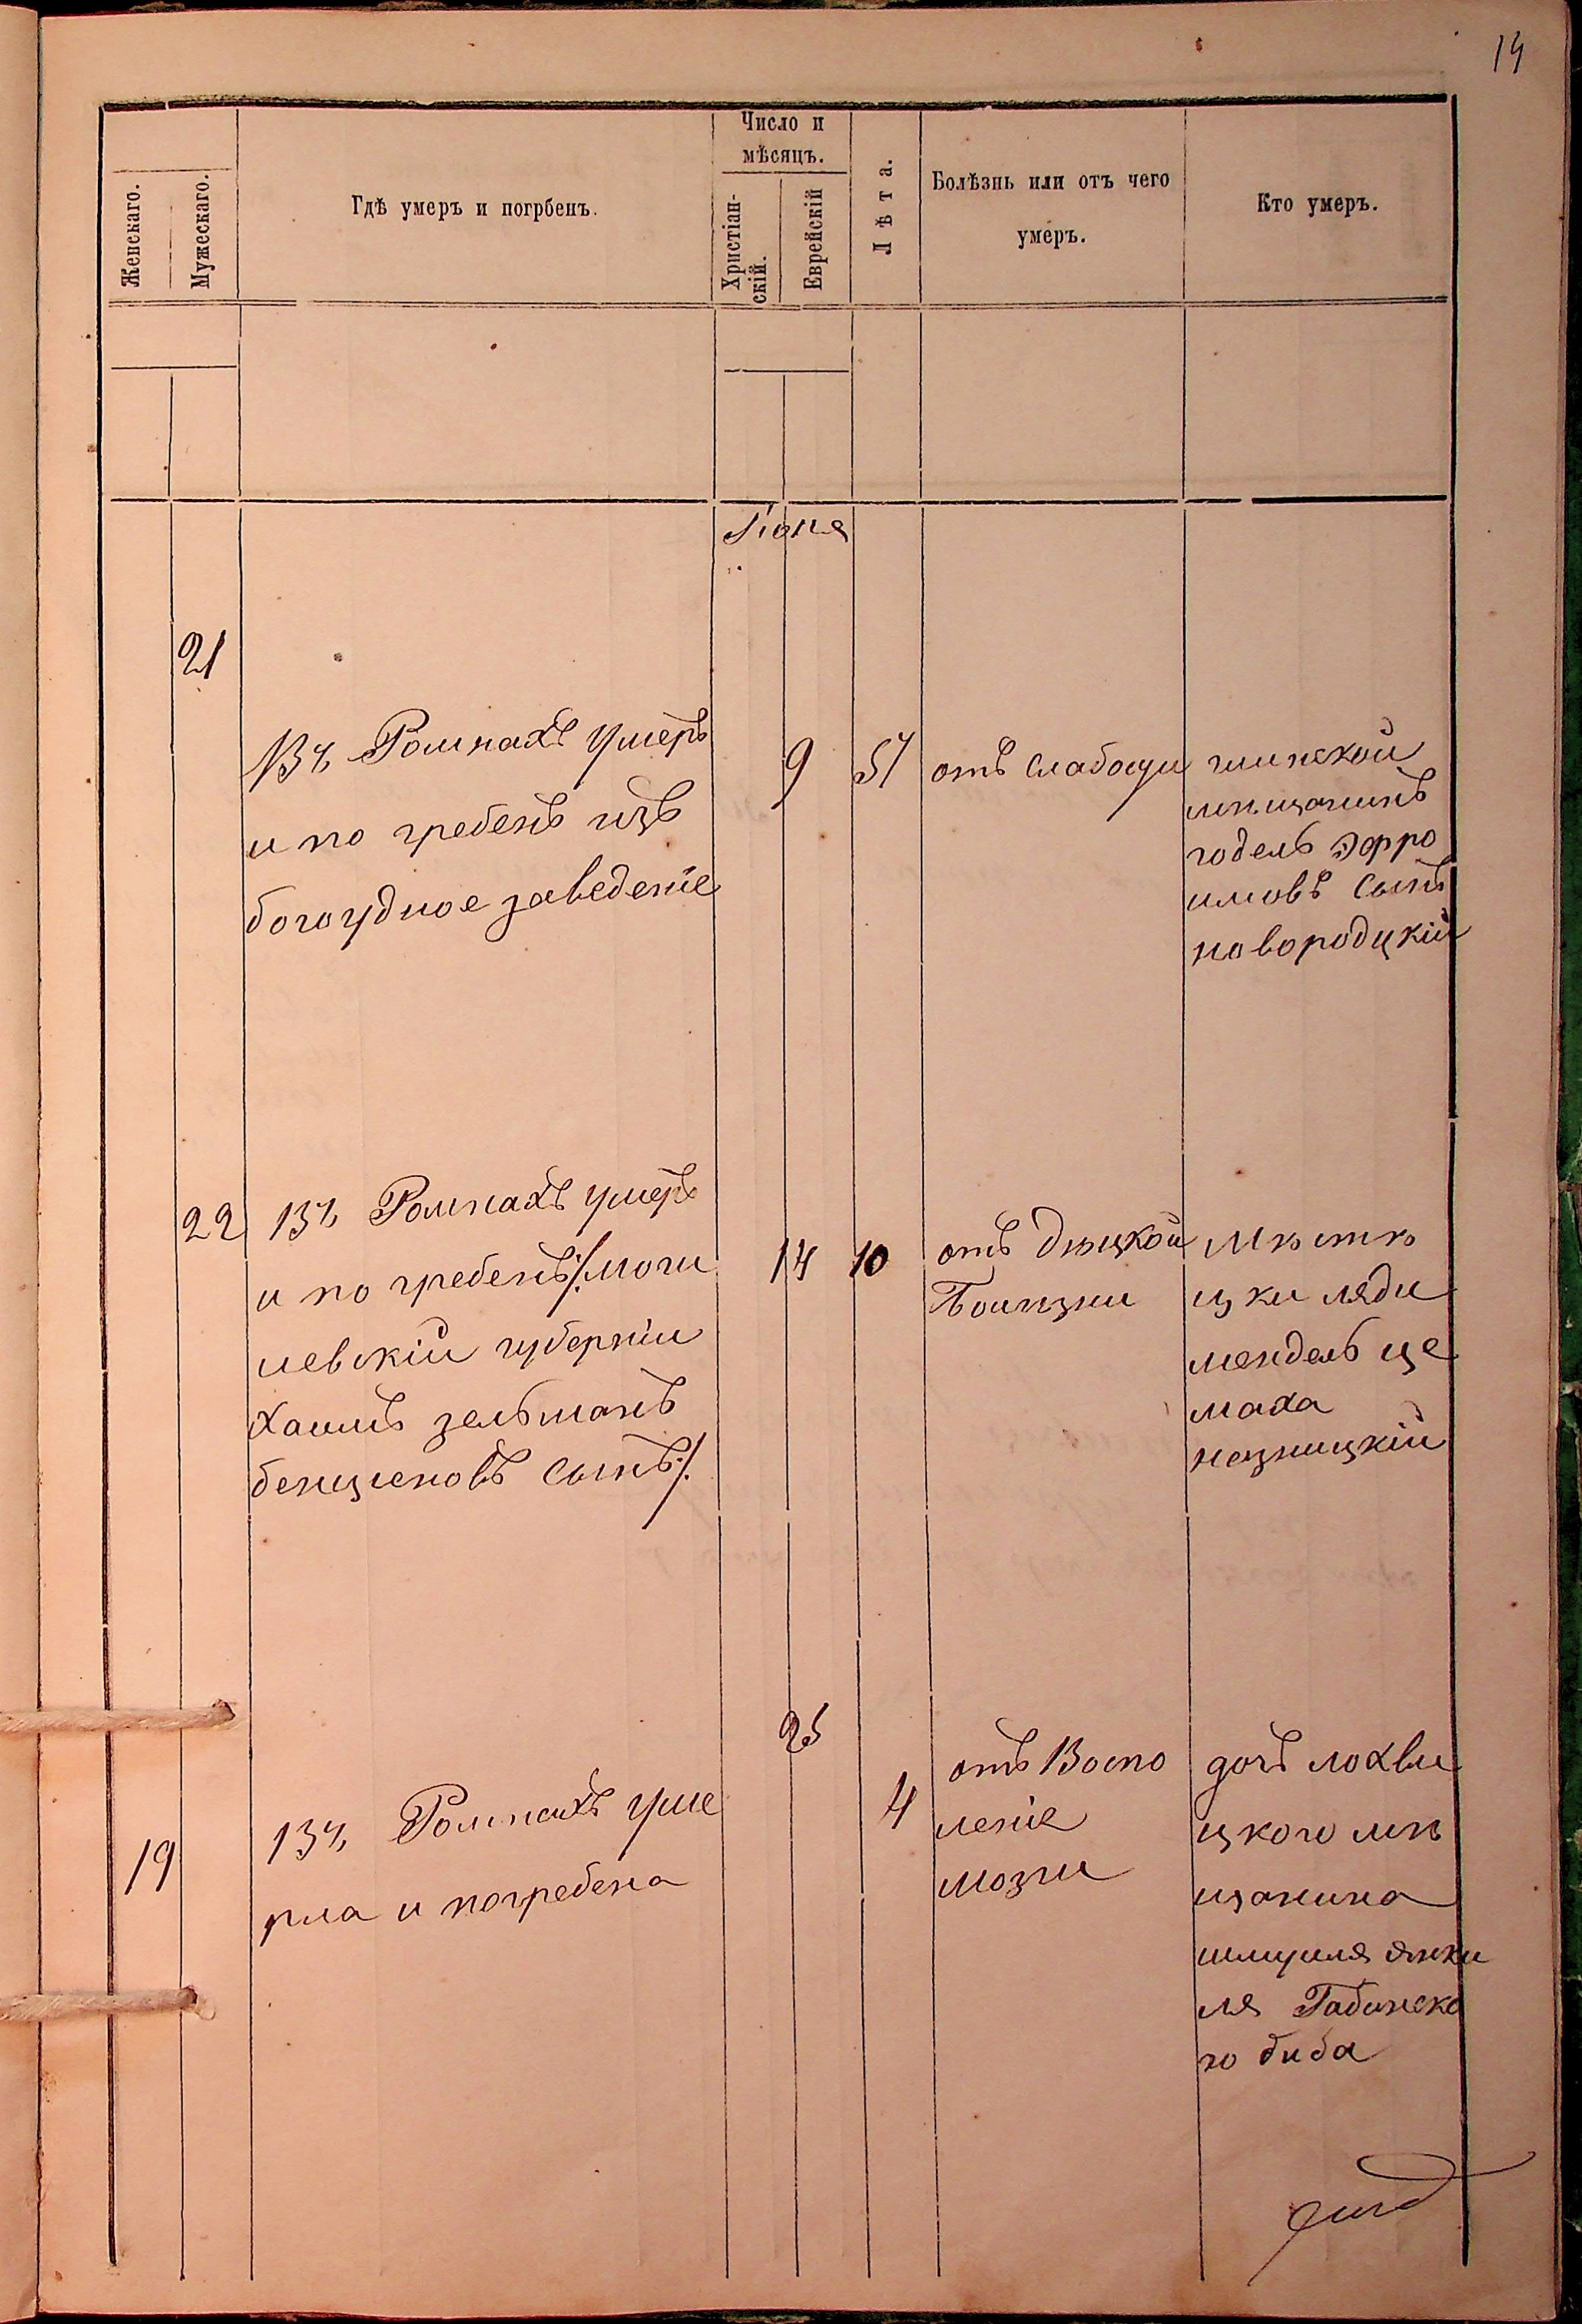 14
Число и
мѣсяцъ.
Женскаго.
Мужескаго.
Гдѣ умеръ и погрбенъ.
Христіан-
скій.
Еврейскій
Лѣта.
Болѣзнь или отъ чего
умеръ.
Кто умеръ.
Іюня
21
Въ Ромнахъ умеръ
и по гребенъ изъ
богоудное заведеніе
9
57
отъ слабощи
минской
мѣщанинъ
годель эфро
имовъ сынъ
новородцкій
22
Въ Ромнахъ умеръ
и по гребенъ /: моги
левскій губерніи
хаимъ зельманъ
бенценовъ сынъ :/
14
10
отъ дѣцкой
болѣзни
Мѣстѣ
цки ляди
мендель це
маха
19
Въ Ромнахъ уме
рла и погребена
25
4
отъ Воспо
леніе
мозги
дочъ лохви
цкого мѣ
щанина
шмуиля янки
ля Габинско
го биба